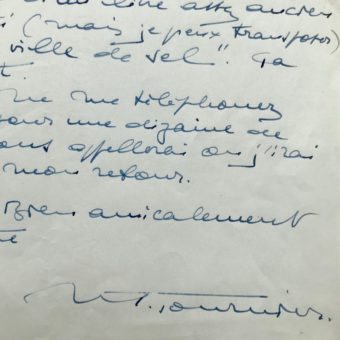 livre assez ancien
(mais je peux transposer)
ville de sel". Ça
t.
ne me téléphonez
pour une dizaine de
ous appellerai ou j'irai
mon retour.
Bien amicalement
M. Tournier.